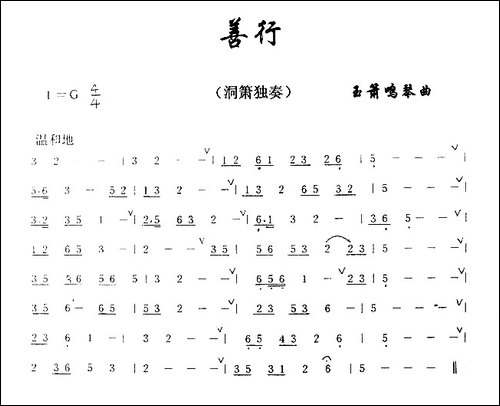 善行
1=G 4/4 （洞箫独奏） 玉箫鸣琴曲
温和地
3 2 - - | 3 2 - - ∨ | 1 2 6 1 2 3 2 6 | 5 - - - ∨ |
3·6 3 - 5 2 | 1 3 2 - ∨ | 1 3 2 6 5 3 2 | 5 - - - |
3·2 3 5 1 - ∨ | 2·5 6 3 2 - ∨ | 6·1 3 2 - | 3 6 5 - - ∨ |
1 2 6 5 3 - | 2 - - ∨ 3 5 | 5 6 5 3 2 2 3 | 5 - - - ∨ |
3 5 3 6 5 6 5 | 5 3 2 - ∨ | 6 5 6 1 - ∨ 2 6 | 5 - - - |
3 5 6 - 6 5 | 5 3 2 - ∨ | 2 3 5 3 6 | 5 - - - ∨ |
2 3 6 1 - | 3 2 - - ∨ | 6 5 4 3 2 6 | 5 - - - ∨ |
2 3 6 5 3 | 2 - - ∨ | 3 5 3 1 2 6 | 5 - - - ‖